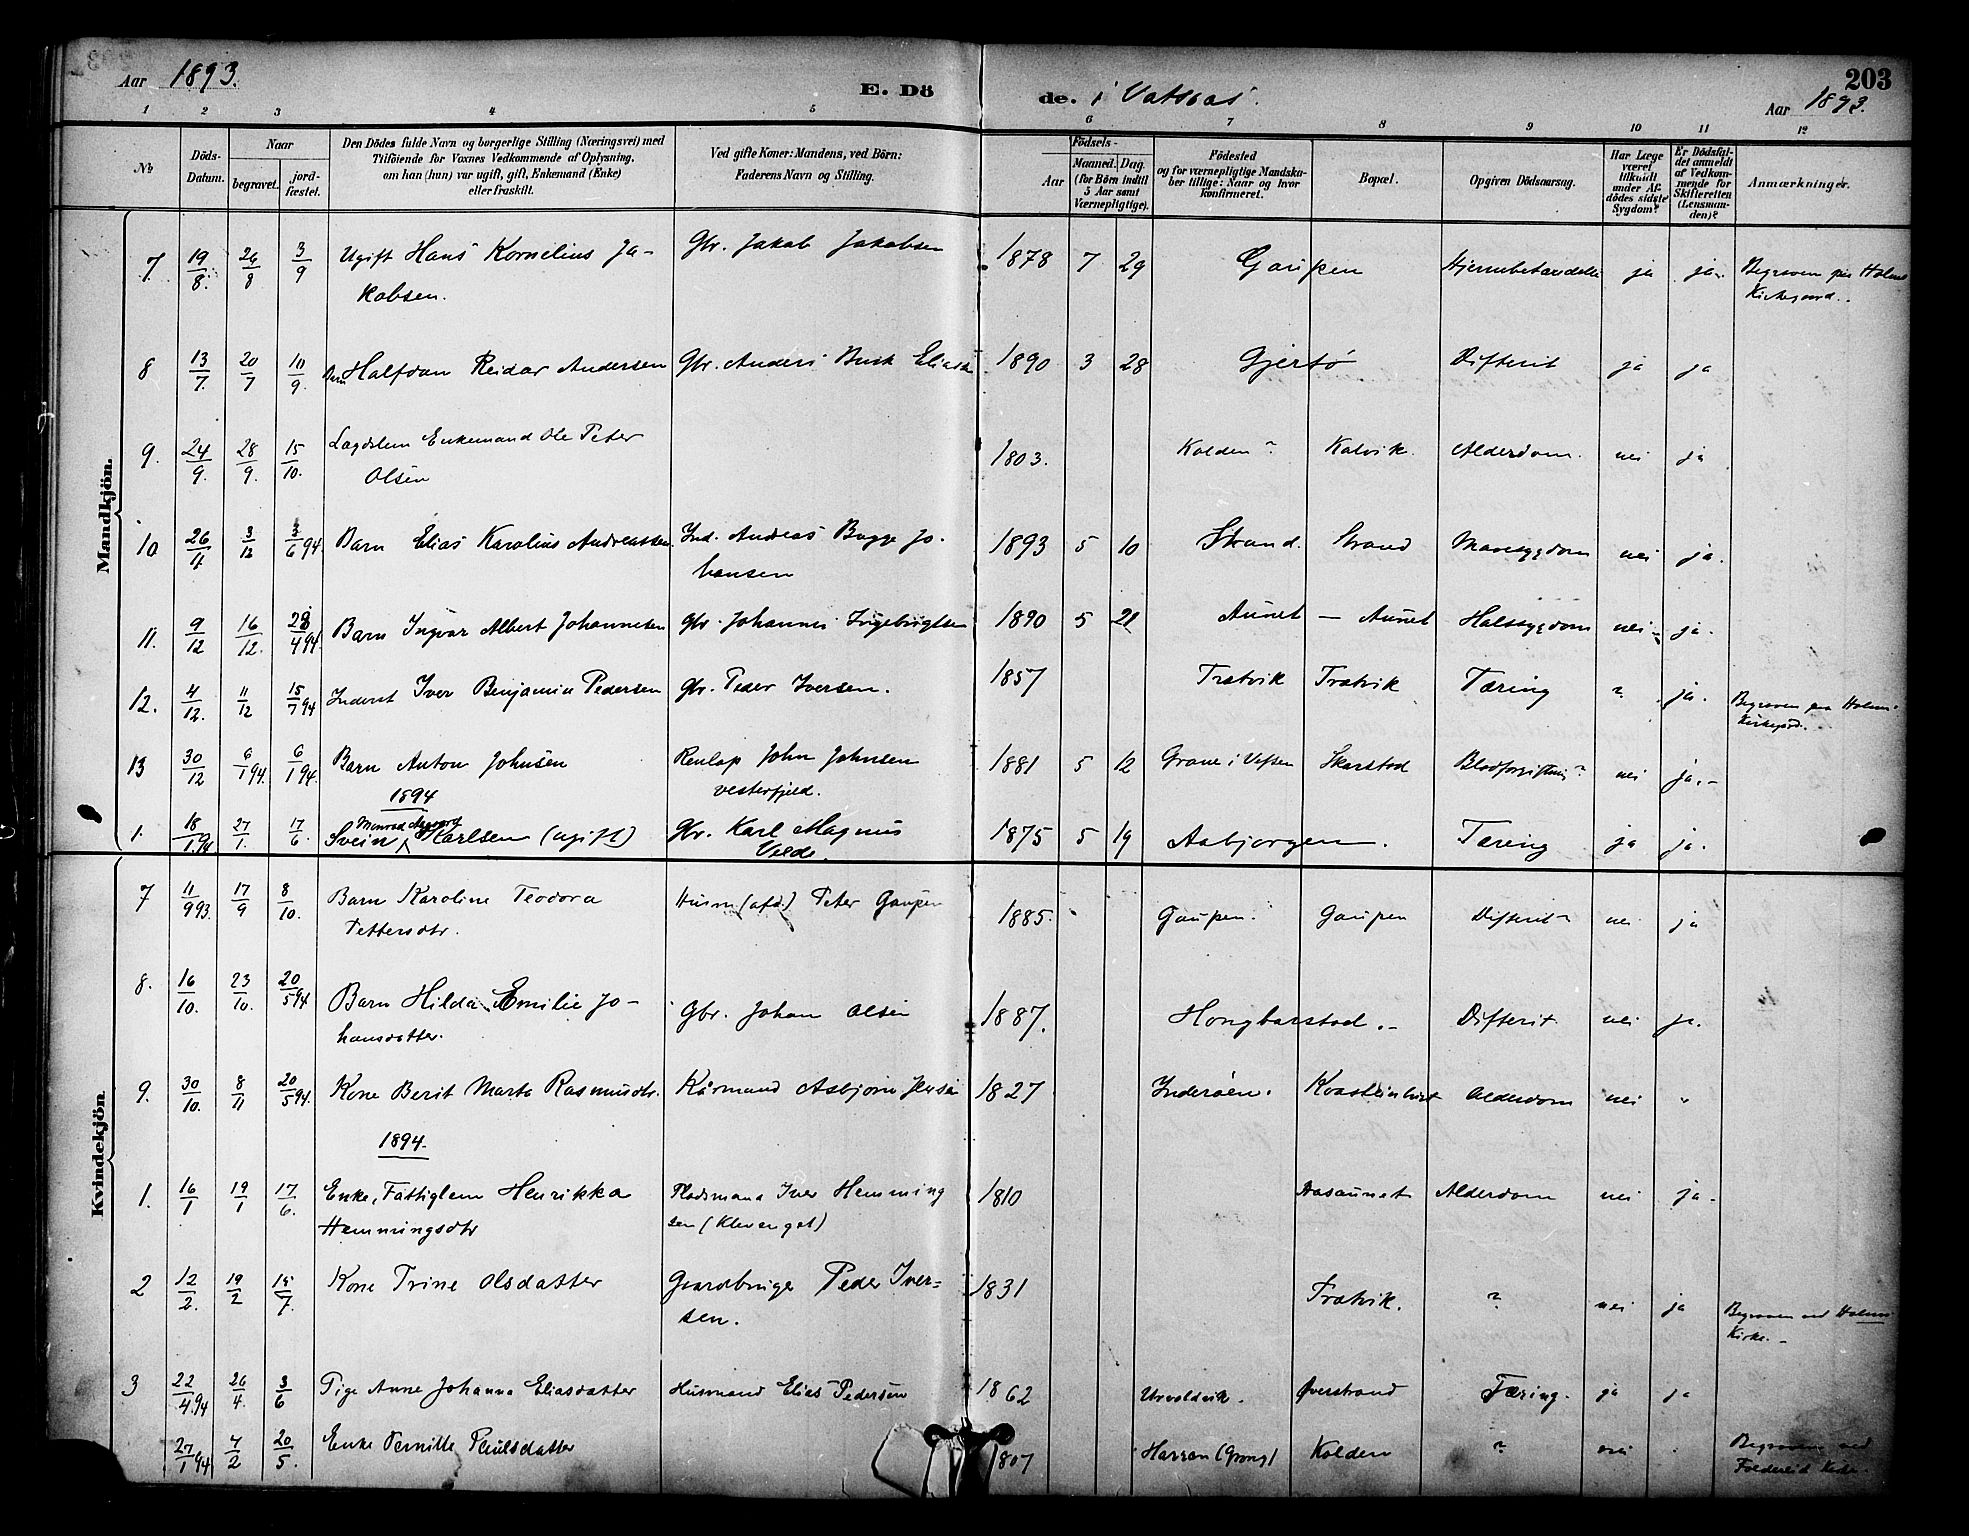 Aar 1893.
E. Döde. i Vatsaas.
Aar 1893.
203
1 2 3 4 5 6 7 8 9 10 11 12
No
Döds-Datum.
Naar
begravet.
jord-fæstet.
Den Dödes fulde Navn og borgerlige Stilling (Næringsvei) med
Tilföiende for Voxnes Vedkommende af Oplysning,
om han (hun) var ugift, gift, Enkemand (Enke)
eller fraskilt.
Ved gifte Koner: Mandens, ved Börn:
Faderens Navn og Stilling.
Födsels-
Aar
Maaned. Dag.
(for Börn indtil
5 Aar samt
Værnepligtige).
Födested
og for værnepligtige Mandska-
ber tillige: Naar og hvor
konfirmeret.
Bopæl.
Opgiven Dödsaarsag.
Har Læge
været
tilkaldt
under Af-
dödes sidste
Sygdom?
Er Dödsfal-
det anmeldt
af Vedkom-
mende for
Skifteretten
(Lensman-
den)?
Anmærkninger.
Mandkjön.
7 19/8. 26/8 3/9 Ugift Hans Kornelius Ja- Gbr. Jakob Jakobsen 1878 7 29 Gaupen ja ja. Begraven paa Holms
kobsen. Kirkegaard.
8 13/7. 20/7 10/9. Barn Halfdan Reidar Andersen Gbr. Anders Busk Eliasen 1890 3 28 Gjersø Difterit ja ja
9. 24/9. 28/9. 15/10. Lægdslem Enkemand Ole Peter 1803. Kolden? Kalvik. Alderdom. nei ja
Olsen
10 26/11. 3/12 3/6 94. Barn Elias Karolius Andreassen. Ind. Andreas Bugge Jo- 1893 5 10 Strand. Strand Mavesygdom nei ja.
hansen
11. 9/12 16/12. 28/4 94. Barn Ingvar Albert Johannesen Gbr. Johannes Ingebrigtsen 1890 5 21 Aunet — Aunet Halssygdom nei - ja.
12. 4/12. 11/12 15/7 94 Inderst Iver Benjamin Pedersen Gbr. Peder Iversen. 1857 Trætvik Trætvik Tæring ? ja. Begraven paa Holms
Kirkegård.
13 30/12 6/1 94. 6/1 94. Barn Anton Johnsen Renlap John Johnsen 1881 5 12 Grane i Vefsen Skarstad Blodforgiftning? nei ja.-
vesterfjeld.
1894
1. 18/1. 94 27/1. 17/6. Svein Monrad Aagaard Karlsen (ugift) Gbr. Karl Magnus 1875 5 19 Asbjorgen. Tæring ja ja.
Velde.
Kvindekjön.
7 11/9 93. 17/9 8/10. Barn Karoline Teodora Husm (afd.) Peter Gaupen 1885. Gaupen. Gaupen Difterit? nei ja
Pettersdtr.
8. 16/10. 23/10. 20/5 94 Barn Hilda Emilie Jo- Gbr. Johan Olsen 1887. Hongbarstad.- Difterit. nei ja.
hansdatter.
9. 30/10. 8/11 20/5 94. Kone Berit Marta Rasmusdtr. Kårmand Asbjørn Jensen 1827 Inderøen. Alderdom nei "
1894.
1. 16/1 19/1 17/6. Enke, Fattiglem Henrikka Pladsmand Iver Hemming 1810 Aasaunet Alderdom nei ja.
Hemmingsdtr sen (Klevenget)
2 12/2. 19/2 15/7. Kone Trine Olsdatter Gaardbruger Peder Iver- 1831 Trætvik. ? nei ja Begraven ved Holms
sen. Kirke.-
3 22/4. 94 26/4. 3/6 Pige Anne Johanna Eliasdatter Husmand Elias Pedersen 1862 Urvoldvik. Øverstrand Tæring. ja ja
27/1 94 4/2 20/5. Enke Pernille Paulsdatter 1807 Harran (Grong) Kolden ? nei . Begraven ved
Foldereid Kirke.